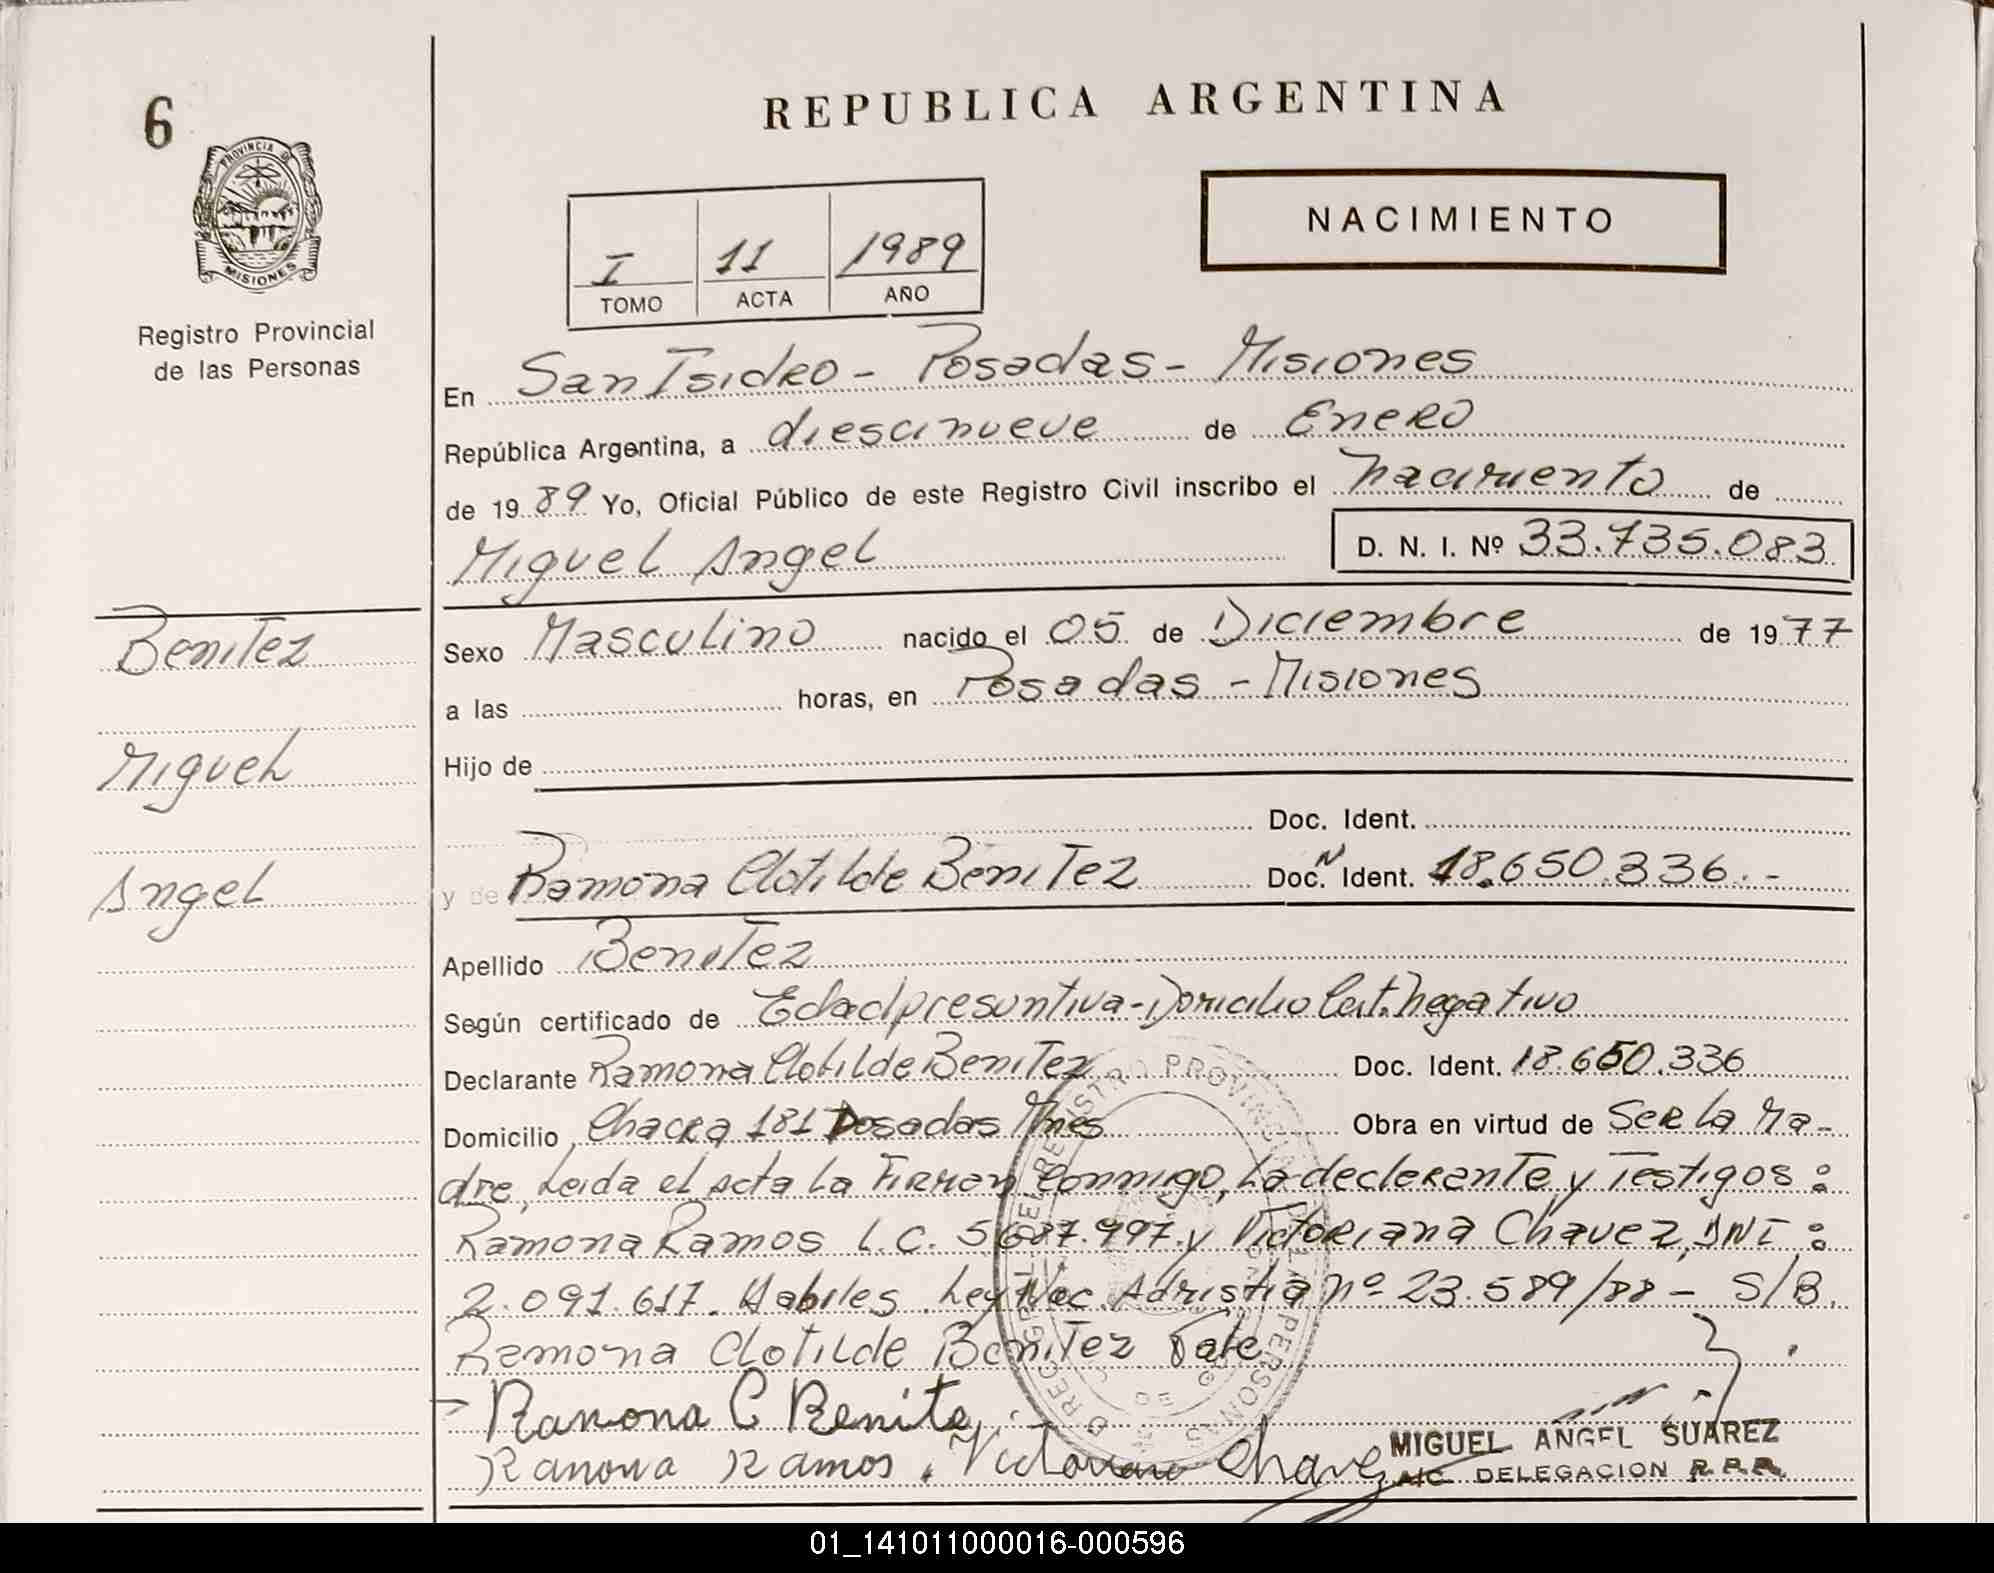 6
REPUBLICA ARGENTINA
PROVINCIA DE
MISIONES
Registro Provincial
de las Personas
I 11 1989
TOMO ACTA AÑO
NACIMIENTO
En San Isidro - Posadas - Misiones
República Argentina, a diesinueve de Enero
de 1989 Yo, Oficial Público de este Registro Civil inscribo el nacimiento de
Miguel Angel D. N. I. Nº 33.735.083
Benitez
Miguel
Angel
Sexo Masculino nacido el 05 de Diciembre de 1977
a las horas, en Posadas - Misiones
Hijo de
Doc. Ident.
y de Ramona Clotilde Benitez Doc. N Ident. 18.650.336.-
Apellido Benitez
Según certificado de Edad presuntiva - Domicilio Cert. Negativo
Declarante Ramona Clotilde Benitez Doc. Ident. 18.650.336
Domicilio Chacra 181 Posadas Mnes Obra en virtud de Ser la Ma-
dre, Leida el acta la Firman Conmigo, La declarante y Testigos:
Ramona Ramos L.C. 5687.997 y Victoriana Chavez, DNI:
2.091.617. Habiles. Ley Nac. nº 23.589/88 - S/B.
Ramona Clotilde Benitez Vale
Ramona C Benite
Ramona Ramos. Victoriana Chavez
MIGUEL ANGEL SUAREZ
A/C DELEGACION R.P.P.
01_141011000016-000596